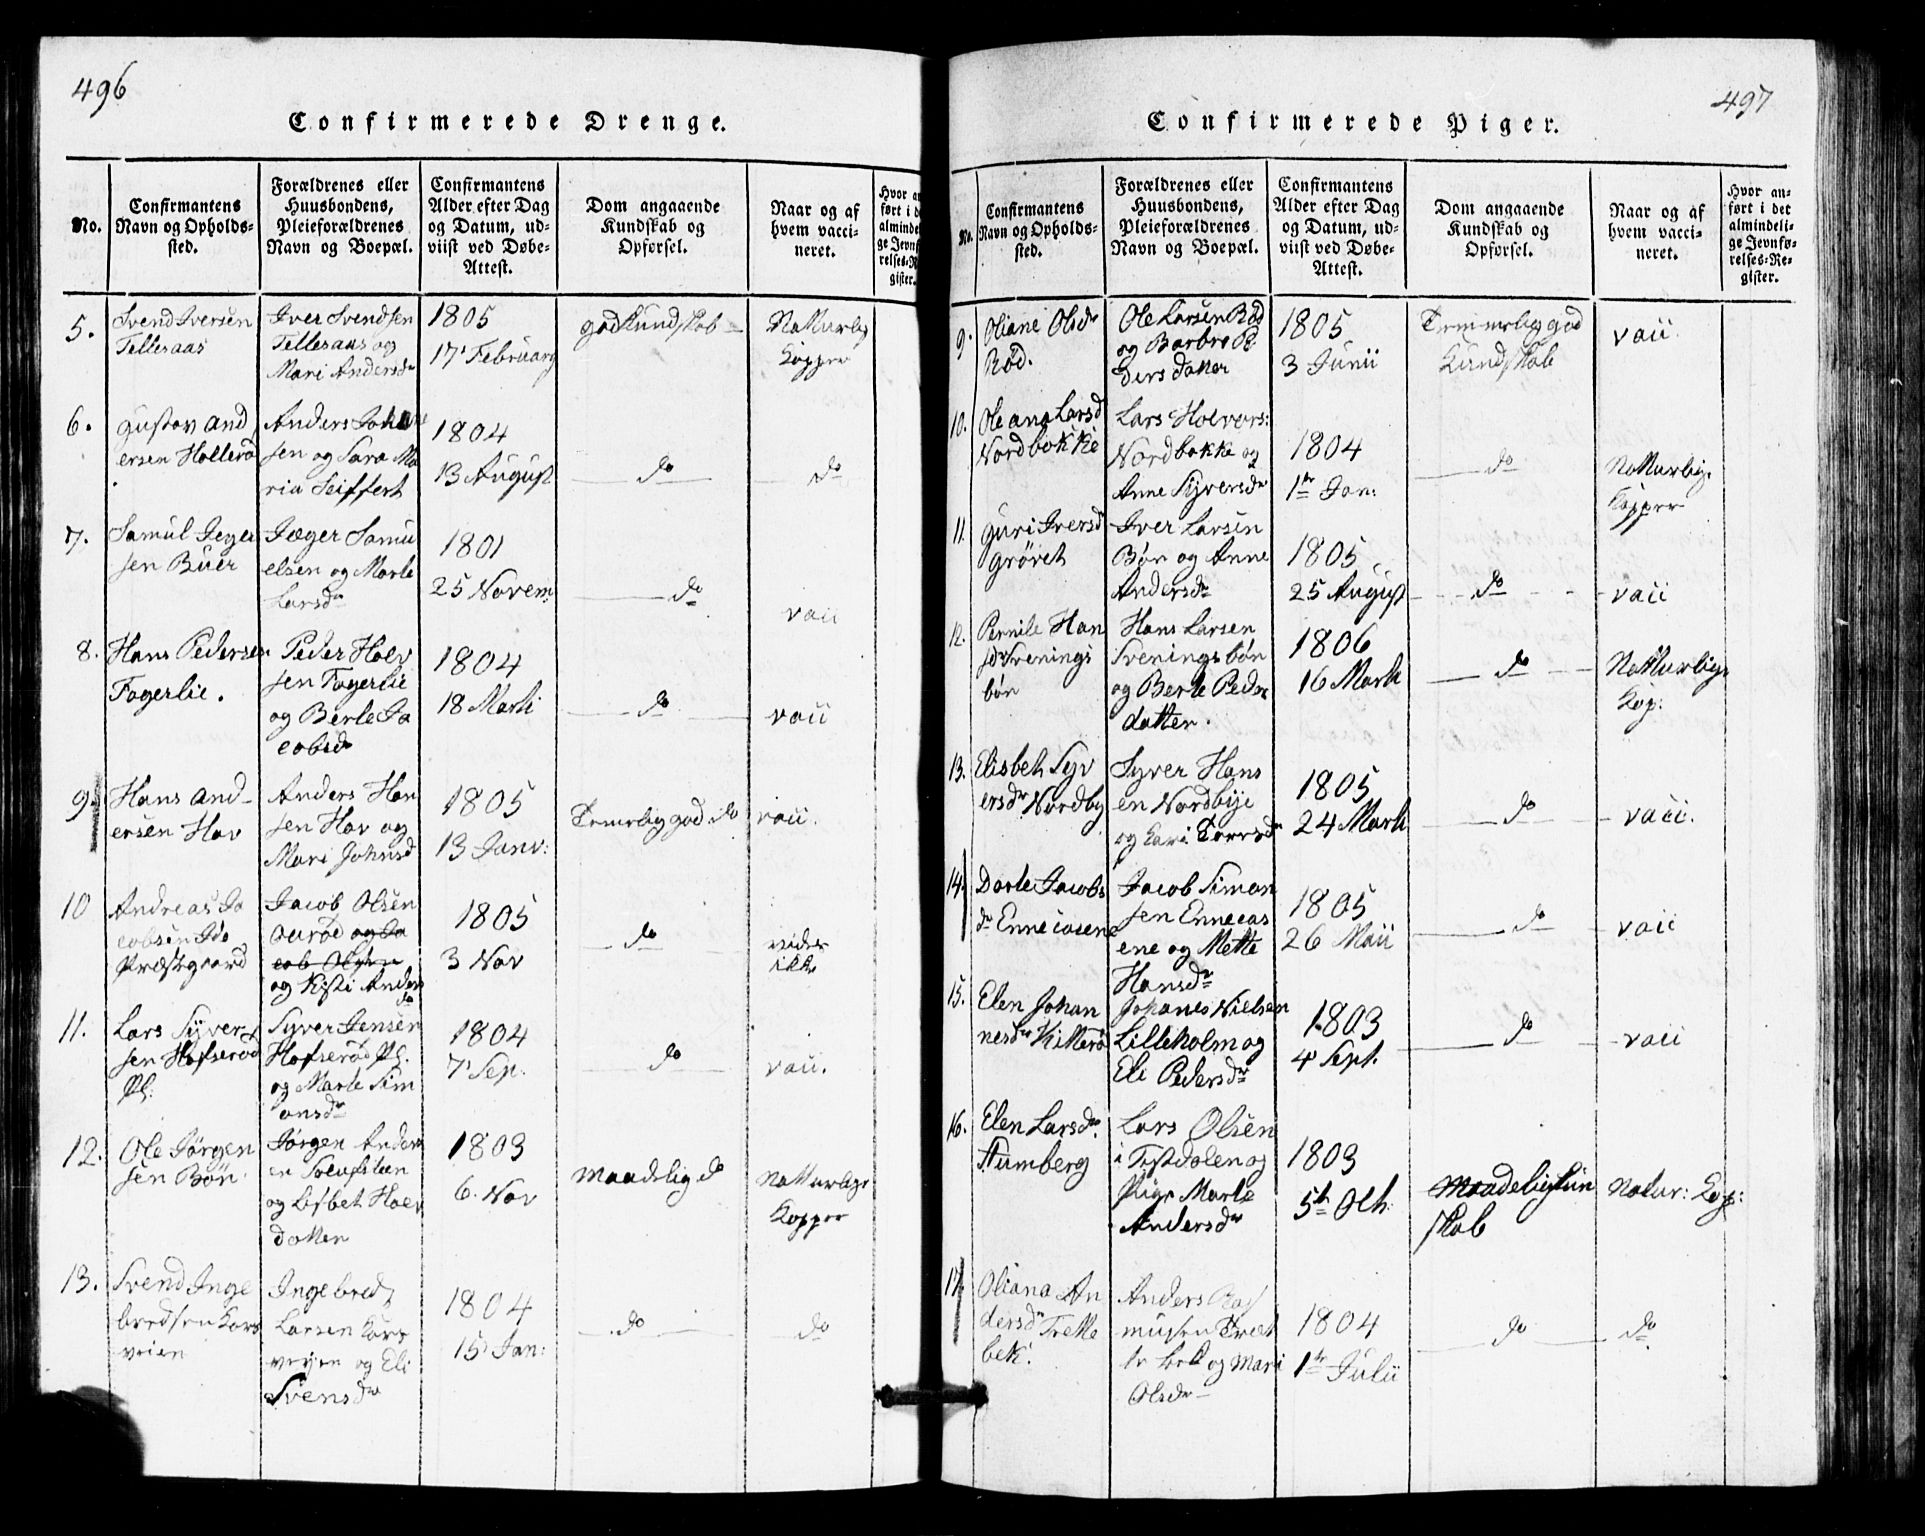 496
Confirmerede Drenge.
No.
Confirmantens
Navn og Opholds-
sted.
Forældrenes eller
Huusbondens,
Pleieforældrenes
Navn og Boepæl.
Confirmantens
Alder efter Dag
og Datum, ud-
viist ved Døbe-
Attest.
Dom angaaende
Kundskab og
Opførsel.
Naar og af
hvem vacci-
neret.
Hvor an
ført i de
almindel
ge Jevnf
relses-R
gister.
5.
Svend Iversen
Tellesaas
Iver Svendsen
Tellesaas og
Mari Andersdr
1805
17 Februarq
god Kundskab
Natturlig
Kopper
6.
Gustav And
ersen Hollerö
Anders Johan
sen og Sara Ma
ria Seiffert
1804
13 August
do
do
7.
Samul Jeger
sen Buer
Jæger Samu
elsen og Marte
Larsdr
1801
25 Novem:
do
vacc
8.
Hans Pedersen
Fagerlie.
Peder Hoev
sen Fagerlie
og Berte Ja
cobsdr
1804
18 Marti
do
vacc
9.
Hans And-
ersen Hov
Anders Han
sen Hov og
Mari Johnsd
1805
13 Janv:
Temelig god do
vacc.
10
Andreas Ja
cobsen Ide
Præstegaard
Jacob Olsen
Aurød og Ja
cob Olsen
og Kisti Anders
dr
1805
3 Nov
do
vides
ikke
11.
Lars Syver-
sen Hafserød
Pl:
Syver Jensen
Hafserød Pl.
og Marte Sim
onsdr
1804
7 Sep.
do
vacc.
12.
Ole Jörgen
sen Bön
Jörgen Anders
en
og Lisbet Hoev
datter
1803
6. Nov
Maadelig do
Natturlige
Kopper
13.
Svend Inge
bredsen Kors
veien
Ingebredt
Larsen Kors
veien og Eli
Svensdr
1804
15 Jan:
do
do
497
Confirmerede Piger.
No.
Confirmantens
Navn og Opholds-
sted.
Forældrenes eller
Huusbondens,
Pleieforældrenes
Navn og Boepæl.
Confirmantens
Alder efter Dag
og Datum, ud-
viist ved Døbe-
Attest.
Dom angaaende
Kundskab og
Opførsel.
Naar og af
hvem vacci-
neret.
Hvor an-
ført i det
almindeli-
ge Jevnfø-
relses-Re-
gister.
9.
Oliane Olsdr
Röd.
Ole Larsen Röd
og Barbro Pe
ders datter
1805
3 Junii
Temmelig god
Kundskab
vacc.
10.
Oleana Larsd
Nordbakke
Lars Holvors:
Nordbakke og
Anne Syversdr
1804
1te Jan:
do
Natturlig.
Kopper
11.
Guri Iversd
Grövet
Iver Larsen
Bön og Anne
Andersdr
1805
25 August
do
vacc
12.
Pernile Han
sdr Svenings
bön
Hans Larsen
Sveningsbön
og Berte Peder
datter.
1806
16 Marti
do
Natturlige
Kop:
13.
Elisbeh Syv
ersdr Nordby
Syver Hans
en Nordbye
og Kari Torersdr
1805
24 Marti
do
vacc.
14.
Dorte Jacobs
dr Ennecasene
Jacob Simon
sen Ennecas
ene og Mette
Hansdr
1805
26 Maii
do
vacc
15.
Elen Johan
nesdr Kitterö
Johanes Nielsen
Lilleholm og
Eli Pedersdr
1803
4 Sept.
do
vacc
16.
Elen Larsdr
Stumberg
Lars Olsen
i Tistdalen og
Pige Marte
Andersdr
1803
5te Octb.
Maadelig Kun
skab
Natur: Kop:
17.
Oliana An
dersdr Trette
bek.
Anders Ras
musen Træt
te bek og Mari
Olsdr
1804
1te Julii
do
do